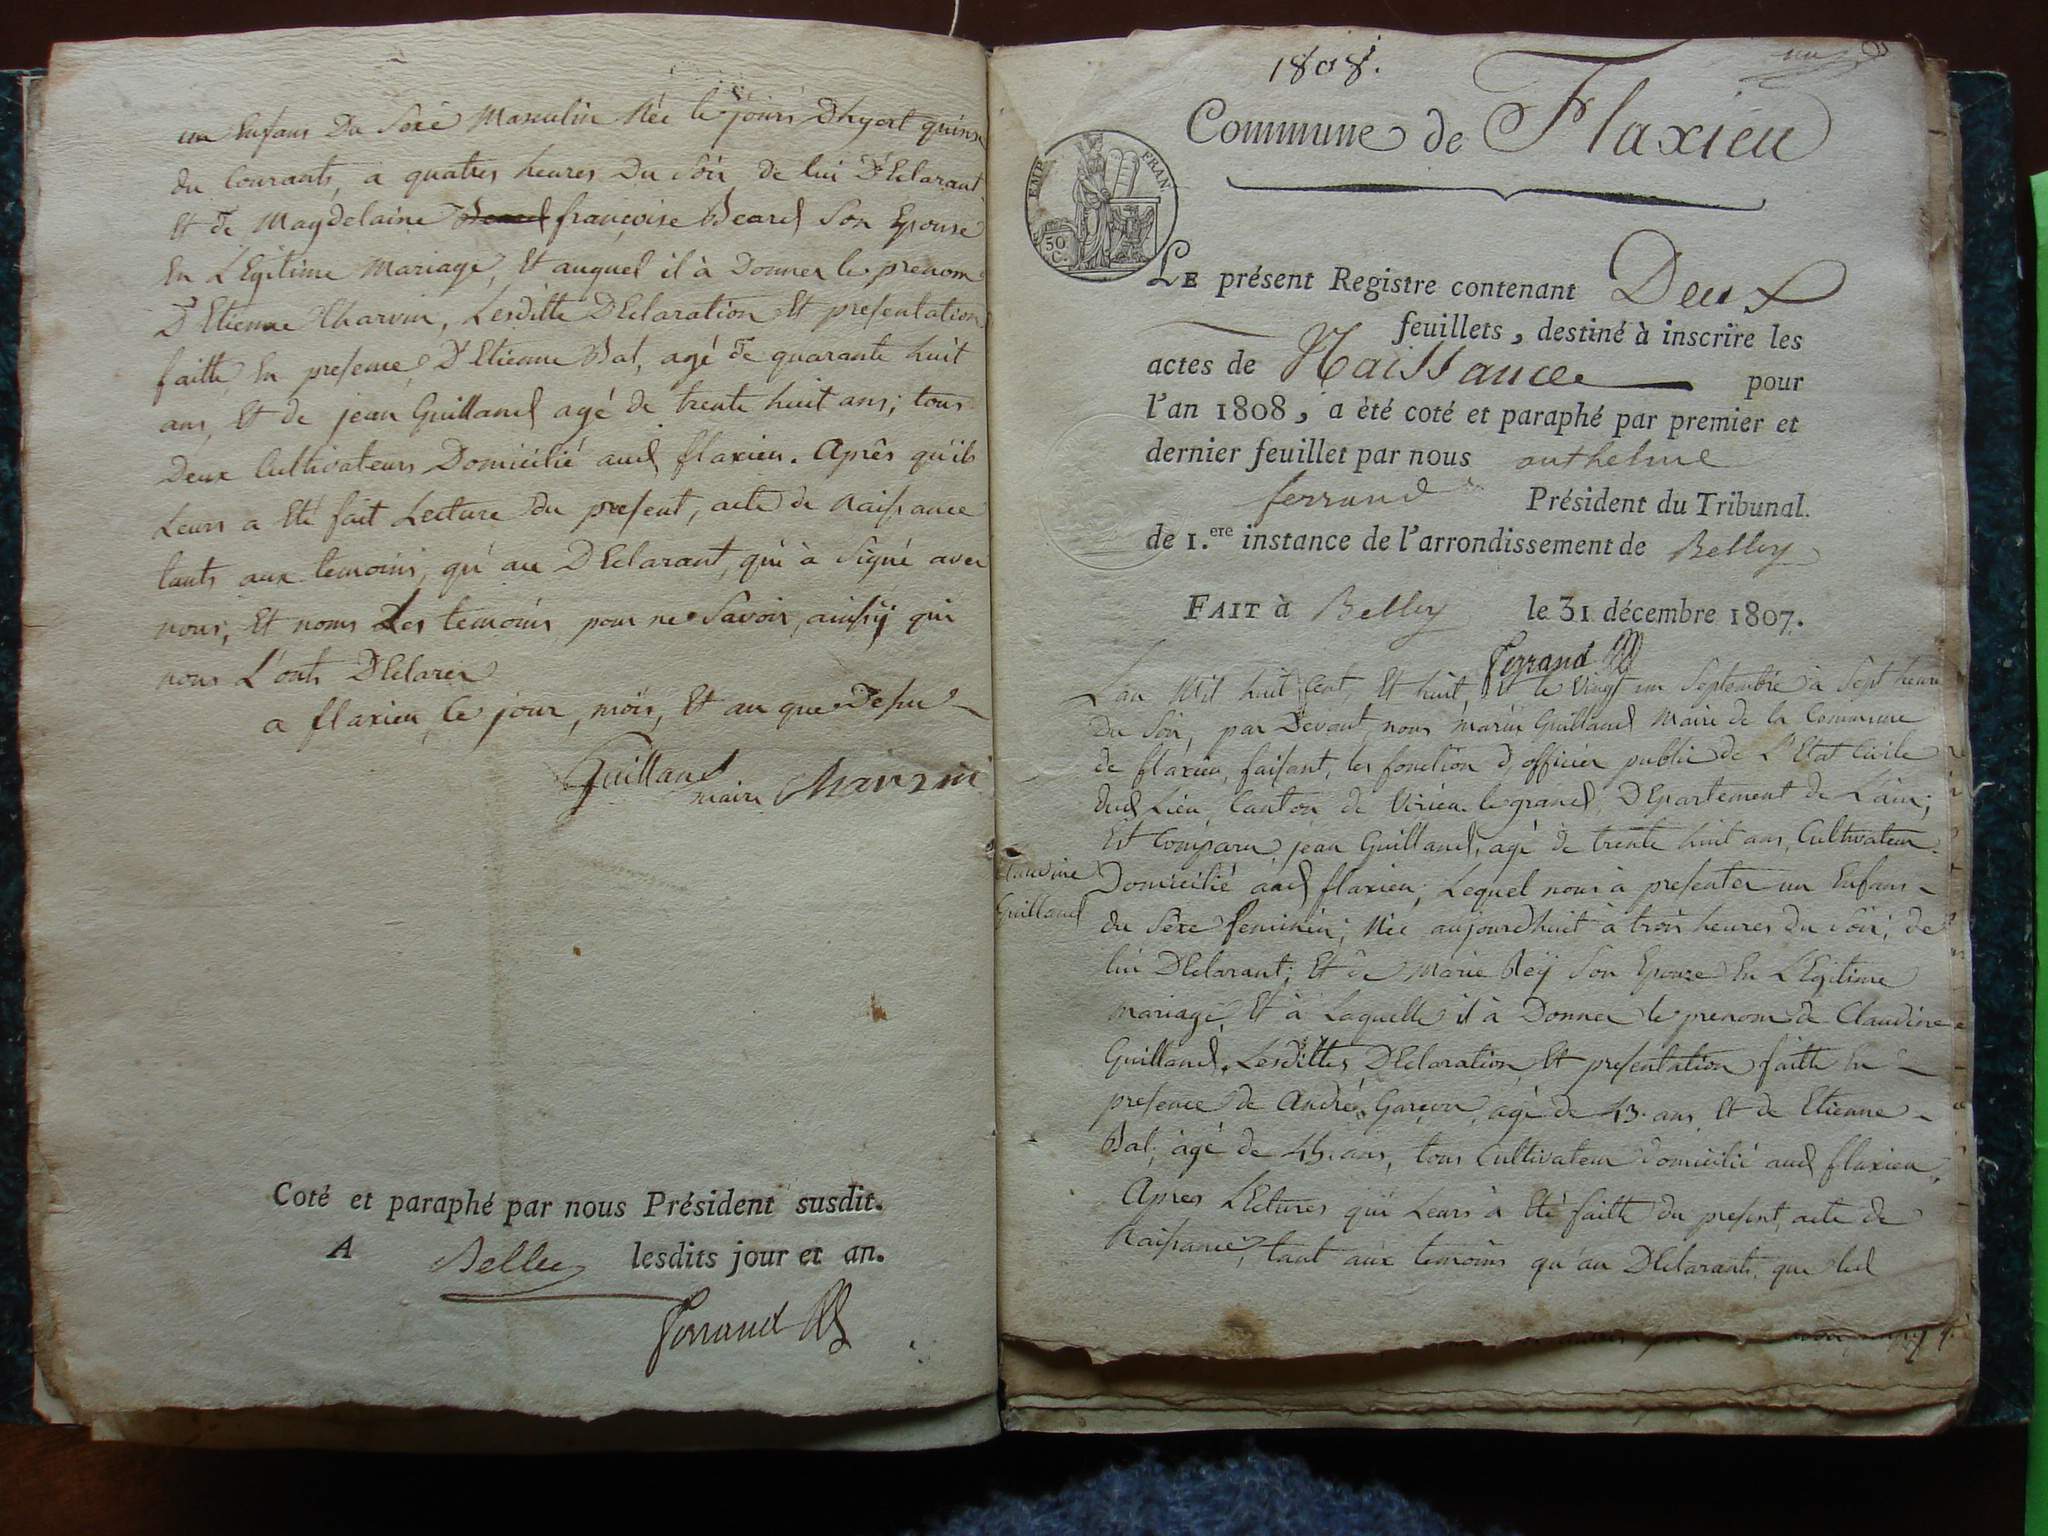 un Enfans Du Sexe Masculin Née le jours D'hyert quinze
du Courants, a quatres heures Du Soir de lui D'Eclarant
Et de Magdelaine françoise Beard Son Epouse
En L'Egitime Mariage, Et auquel il à Donner le prenom
D'Etienne Charvin, Lesditte DEclaration Et presentation
faitte En presence D'Etienne Bal, agé de quarante huit
ans, Et de jean Guilland agé de trente huit ans; tous
Deux Cultivateurs Domicilié aud flaxieu. Après qu'ils
Leurs a Eté fait Lecture du present, acte de Naissance
tants aux temoins, qu'au DEclarant, qui à Signé avec
nous, Et noms Les temoins pour ne Savoir, ainsij qui
nous L'onts DEclarer
a flaxieu, le jour, mois, Et an que Desu
Guilland
maire Charvin
Coté et paraphé par nous Président susdit.
A Belley lesdits jour et an.
Ferrand
1808.
Commune de Flaxieu
EMP. FRAN.
50
C.
LE présent Registre contenant Deux
feuillets, destiné à inscrire les
actes de Naissance pour
l'an 1808, a été coté et paraphé par premier et
dernier feuillet par nous anthelme
ferrand Président du Tribunal
de 1.ere instance de l'arrondissement de Belley
FAIT à Belley le 31 décembre 1807.
Ferrand
L'an Mil huit Cent, Et huit, Et le Vingt un Septembre à Sept heure
Du Soir, par Devant nous marin Guilland Maire de la Commune
de flaxieu, faisant, les fonction d'officier public de L'Etat Civile
dud Lieu, Canton de Virieu-le-grand, DEpartement de L'ain;
Est Comparu, jean Guilland, agé de trente huit ans, Cultivateur
Claudine
Guilland
Domicilié aud flaxieu; Lequel nous à presenter un Enfans
du Sexe feminin; Née aujourdhuit à trois heures du Soir; de
lui DEclarant; Et de Marie Reÿ Son Epouze En LEgitime
mariage, Et à Laquelle il à Donner le prenom de Claudine
Guilland. Lesdittes DEclaration Et presentation faitte En
presence de André Garçon, agé de 43. ans, Et de Etienne
Bal, agé de 45. ans, tous Cultivateur domicilié aud flaxieu,
Apres LEctures qui Leurs à Eté faitte du present, acte de
Naissance, tant aux temoins qu'au DEclarants, que led